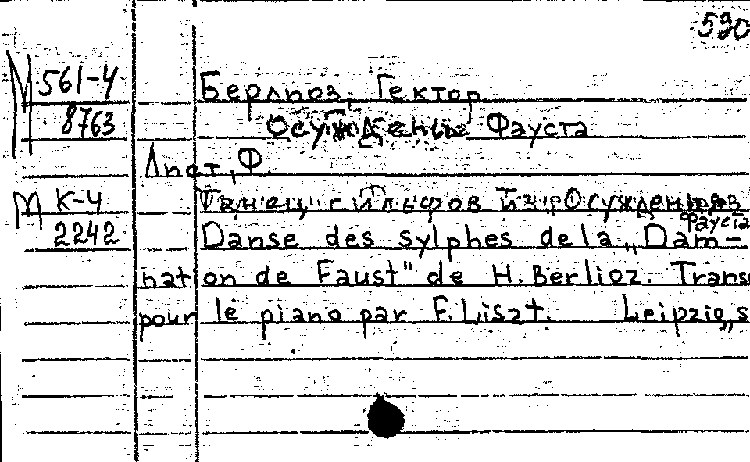 530
М 561-4 Берлиоз, Гектор
8763 Осуждение Фауста
Лист, Ф.
М К-4 Танец сильфов из "Осуждения
Фауста
2242 Danse des sylphes de la "Dam-
nation de Faust" de H. Berlioz. Trans
pour le piano par F. Liszt. Leipzig, s